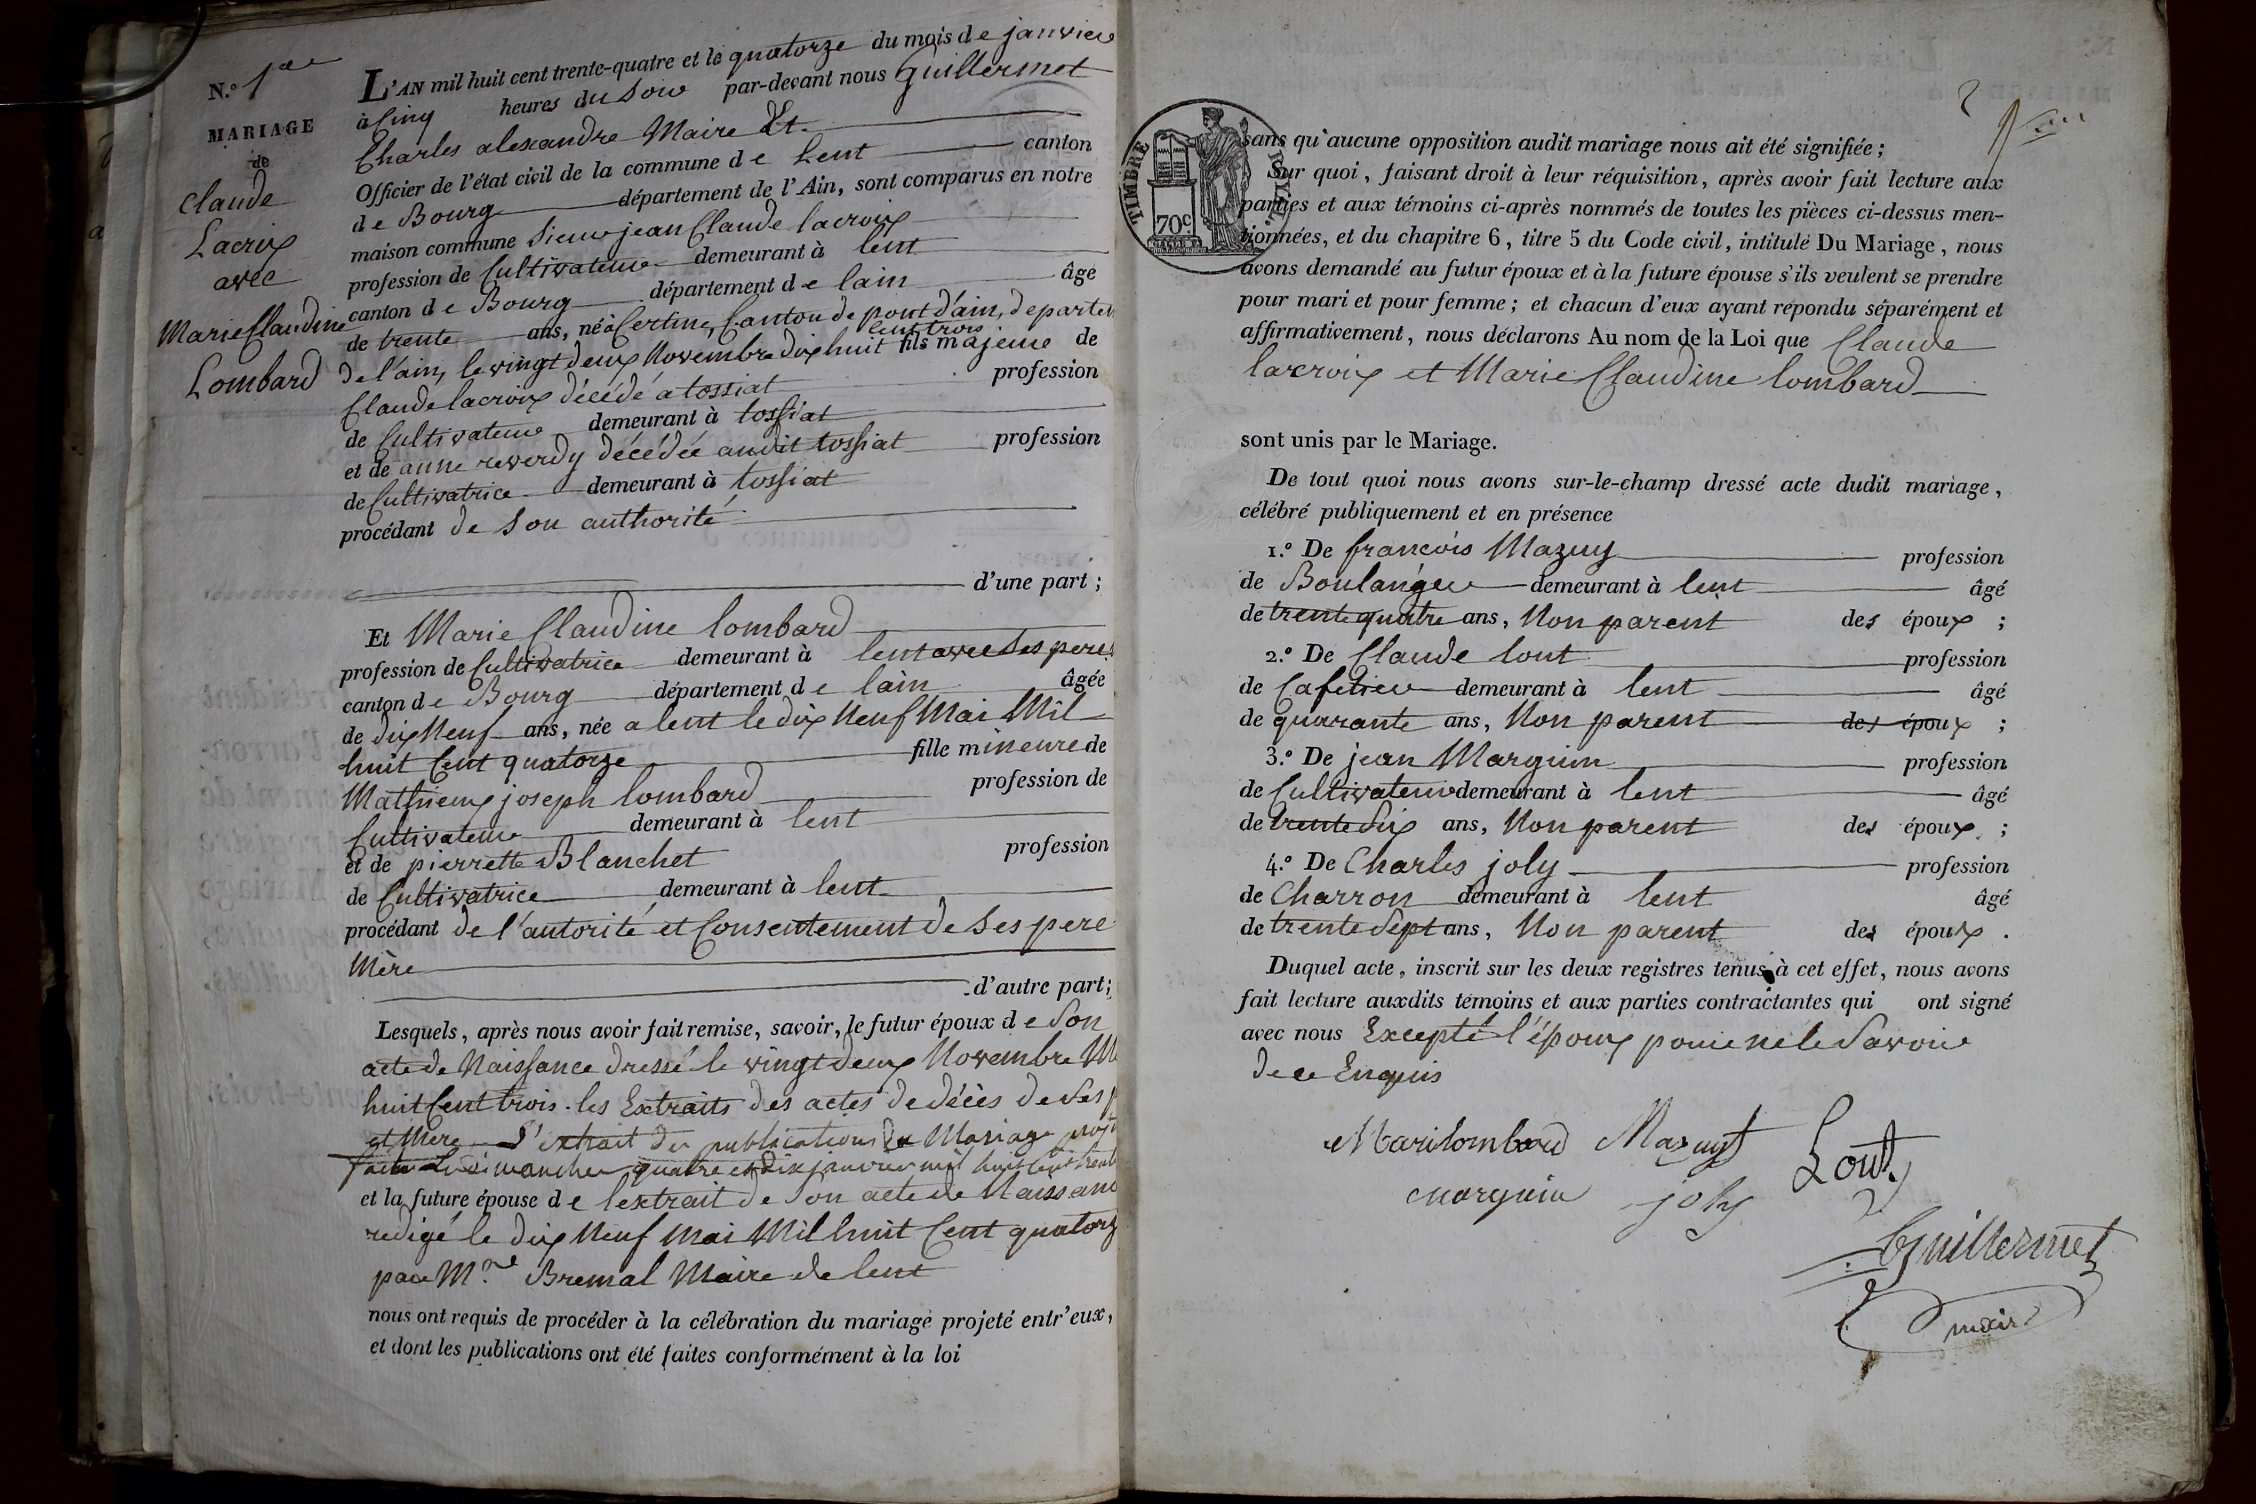 N.º 1er
MARIAGE
de
Claude
Lacroix
avec
Marie Claudine
Lombard
L'AN mil huit cent trente-quatre et le quatorze du mois de janvier
à Cinq heures du Soir par-devant nous Guillermet
Charles alexandre Maire Et
Officier de l'état civil de la commune de Lent canton
de Bourg département de l'Ain, sont comparus en notre
maison commune Sieur jean Claude lacroix
profession de Cultivateur demeurant à lent
canton de Bourg département de lain âgé
de trente ans, né à Certine, Canton de pont d'ain, departem
cent trois
de l'ain, le vingt deux Novembre dix huit fils majeur de
Claude lacroix décédé a tossiat profession
de Cultivateur demeurant à tossiat
et de anne reverdy décédée audit tossiat profession
de Cultivatrice demeurant à tossiat
procédant de Son authorité
d'une part ;
Et Marie Claudine lombard
profession de Cultivatrice demeurant à lent avec Ses peres
canton de Bourg département de lain âgée
de dix Neuf ans, née a lent le dix Neuf Mai Mil
huit Cent quatorze fille mineure de
Mathieux joseph lombard profession de
Cultivateur demeurant à lent
et de pierrette Blanchet profession
de Cultivatrice demeurant à lent
procédant de l'autorité et Consentement de Ses pere
Mère
d'autre part ;
Lesquels, après nous avoir fait remise, savoir, le futur époux de Son
acte de Naissance dressé le vingt deux Novembre M
huit Cent trois. les Extraits des actes de décès de Ses p
et Mere L'extrait des publications de Mariage proj
faites les dimanches quatre et dix janvier mil huit Cent trent
et la future épouse de lextrait de Son acte de Naissanc
redigé le dix Neuf Mai Mil huit Cent quatorz
par Mr Bremal Maire de lent
nous ont requis de procéder à la célébration du mariage projeté entr'eux,
et dont les publications ont été faites conformément à la loi
2
TIMBRE ROYAL
70c
sans qu'aucune opposition audit mariage nous ait été signifiée ;
Sur quoi, faisant droit à leur réquisition, après avoir fait lecture aux
parties et aux témoins ci-après nommés de toutes les pièces ci-dessus men-
tionnées, et du chapitre 6, titre 5 du Code civil, intitulé Du Mariage, nous
avons demandé au futur époux et à la future épouse s'ils veulent se prendre
pour mari et pour femme ; et chacun d'eux ayant répondu séparément et
affirmativement, nous déclarons Au nom de la Loi que Claude
lacroix et Marie Claudine lombard
sont unis par le Mariage.
De tout quoi nous avons sur-le-champ dressé acte dudit mariage,
célébré publiquement et en présence
1.º De françois Mazuy profession
de Boulanger demeurant à lent âgé
de trente quatre ans, Non parent des époux ;
2.º De Claude lout profession
de Cafetier demeurant à lent âgé
de quarante ans, Non parent des époux ;
3.º De jean Marguin profession
de Cultivateur demeurant à lent âgé
de trente Six ans, Non parent des époux ;
4.º De Charles joly profession
de Charron demeurant à lent âgé
de trente Sept ans, Non parent des époux .
Duquel acte, inscrit sur les deux registres tenus à cet effet, nous avons
fait lecture auxdits témoins et aux parties contractantes qui ont signé
avec nous Excepté l'époux pour ne le Savoir
de ce Enquis
Marilombard Mazuyt Lout
marguin joly
Guillermet
maire